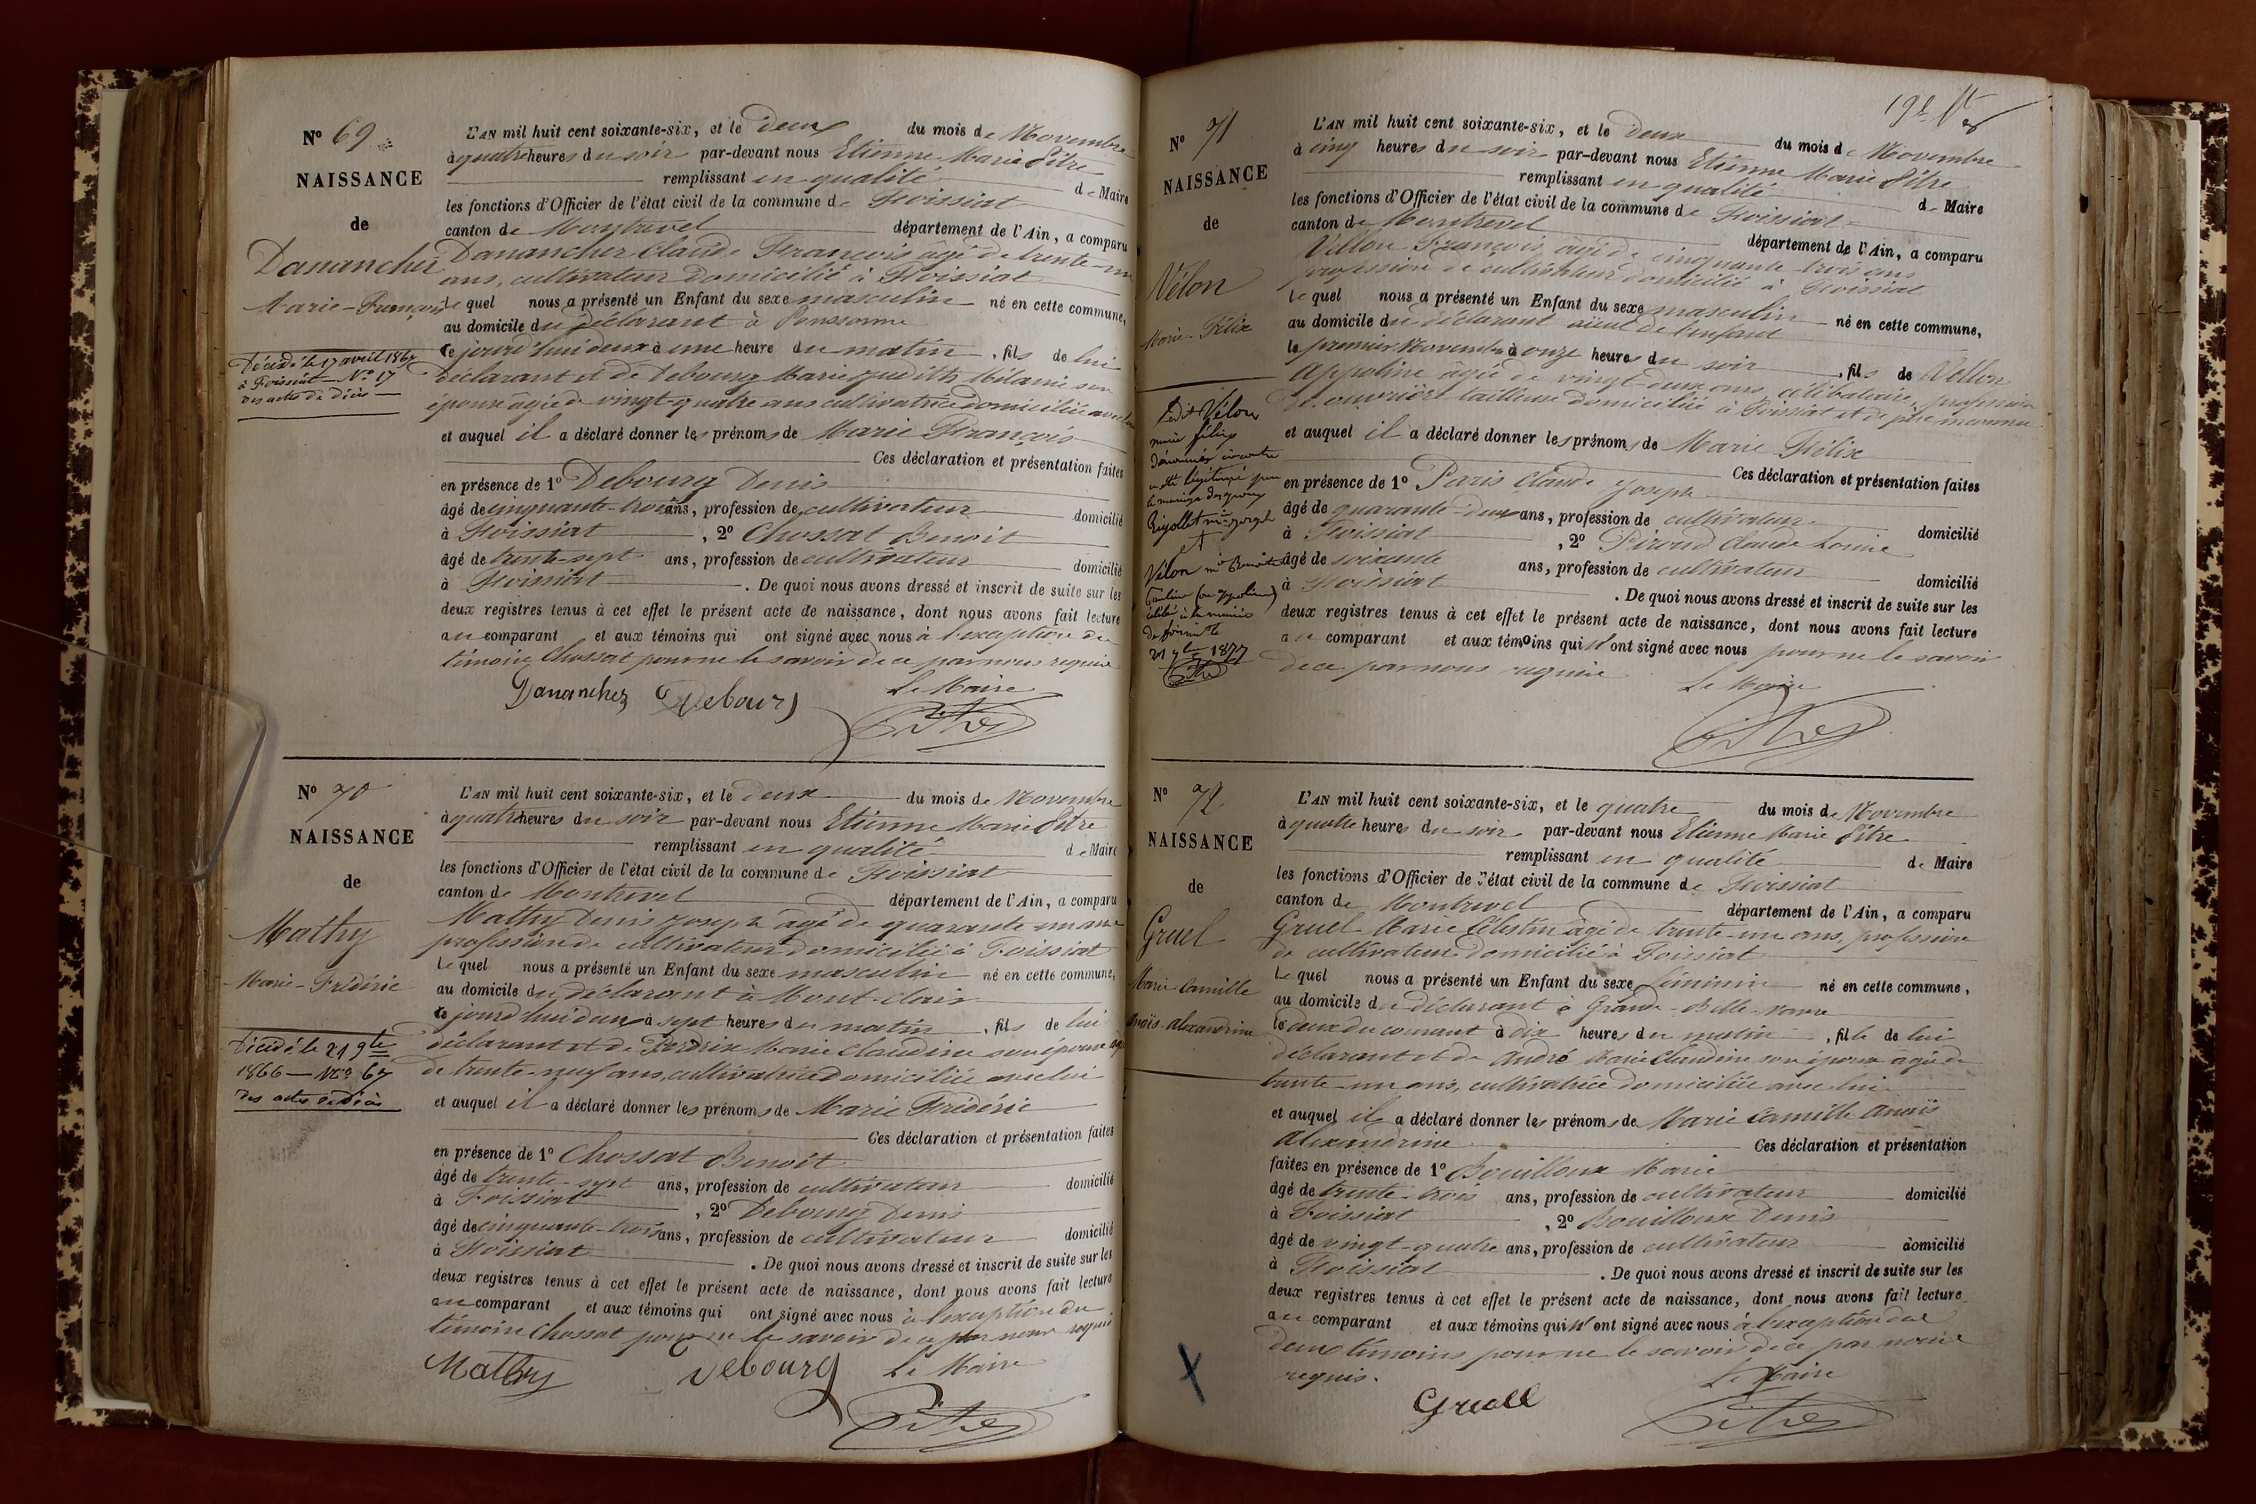 Nº 69
NAISSANCE
de
Danancher
Marie-François
Décédé le 17 avril 1867
à Foissiat — Nº 17
des actes de décès
L'AN mil huit cent soixante-six, et le deux du mois de Novembre
à quatre heures du soir par-devant nous Etienne Marie Pitre
remplissant en qualité de Maire
les fonctions d'Officier de l'état civil de la commune de Foissiat
canton de Montrevel département de l'Ain, a comparu
Danancher Claude François âgé de trente-un
ans, cultivateur domicilié à Foissiat
Lequel nous a présenté un Enfant du sexe masculin né en cette commune,
au domicile du déclarant à
ce jourd'hui deux à une heure du matin, fils de lui
déclarant et de Debourg Marie Judith Mélanie son
épouse âgée de vingt-quatre ans cultivatrice domiciliée avec lui
et auquel il a déclaré donner les prénoms de Marie François
Ces déclaration et présentation faites
en présence de 1º Debourg Denis
âgé de cinquante-trois ans, profession de cultivateur domicilié
à Foissiat, 2º Chossat Benoit
âgé de trente-sept ans, profession de cultivateur domicilié
à Foissiat. De quoi nous avons dressé et inscrit de suite sur les
deux registres tenus à cet effet le présent acte de naissance, dont nous avons fait lecture
au comparant et aux témoins qui ont signé avec nous à l'exception du
témoin Chossat pour ne le savoir de ce par nous requis
Le Maire
Danancher Debourg Pitre
Nº 70
NAISSANCE
de
Mathy
Marie-Frédéric
Décédé le 21 9bre
1866 — Nº 67
des actes de décès
L'AN mil huit cent soixante-six, et le deux du mois de Novembre
à quatre heures du soir par-devant nous Etienne Marie Pitre
remplissant en qualité de Maire
les fonctions d'Officier de l'état civil de la commune de Foissiat
canton de Montrevel département de l'Ain, a comparu
Mathy Denis Joseph âgé de quarante-un ans
profession de cultivateur domicilié à Foissiat
Lequel nous a présenté un Enfant du sexe masculin né en cette commune,
au domicile du déclarant à Mont-clair
ce jourd'hui deux à sept heures du matin, fils de lui
déclarant et de Perdrix Marie Claudine son épouse âgée
de trente-neuf ans, cultivatrice domiciliée avec lui
et auquel il a déclaré donner les prénoms de Marie Frédéric
Ces déclaration et présentation faites
en présence de 1º Chossat Benoit
âgé de trente-sept ans, profession de cultivateur domicilié
à Foissiat, 2º Debourg Denis
âgé de cinquante-trois ans, profession de cultivateur domicilié
à Foissiat. De quoi nous avons dressé et inscrit de suite sur les
deux registres tenus à cet effet le présent acte de naissance, dont nous avons fait lecture
au comparant et aux témoins qui ont signé avec nous à l'exception du
témoin Chossat pour ne le savoir de ce par nous requis
Mathy Debourg Le Maire
Pitre
Nº 71
NAISSANCE
de
Vélon
Marie-Félix
Ledit Vélon
marie félix
dénommé ci contre
a été légitimé par
le mariage des époux
Rigollet Mie Joseph
et
Vélon Mie Benoite
célébré à la mairie
21 9bre 1877
Pitre
L'AN mil huit cent soixante-six, et le deux du mois de Novembre
à cinq heures du soir par-devant nous Etienne Marie Pitre
remplissant en qualité de Maire
les fonctions d'Officier de l'état civil de la commune de Foissiat
canton de Montrevel département de l'Ain, a comparu
Vellon François âgé de cinquante-trois ans
profession de cultivateur domicilié à Foissiat
Lequel nous a présenté un Enfant du sexe masculin né en cette commune,
au domicile du déclarant aïeul de l'enfant
le premier Novembre à onze heures du soir, fils de Vellon
Appoline âgée de vingt-deux ans célibataire, profession
de ouvrière tailleuse domiciliée à Foissiat et de père inconnu
et auquel il a déclaré donner les prénoms de Marie Félix
Ces déclaration et présentation faites
en présence de 1º Paris Claude Joseph
âgé de quarante-deux ans, profession de cultivateur domicilié
à Foissiat, 2º Piroud Claude Louis
âgé de soixante ans, profession de cultivateur domicilié
à Foissiat. De quoi nous avons dressé et inscrit de suite sur les
deux registres tenus à cet effet le présent acte de naissance, dont nous avons fait lecture
au comparant et aux témoins qui n'ont signé avec nous pour ne le savoir
de ce par nous requis
Le Maire
Pitre
Nº 72
NAISSANCE
de
Gruel
Marie-Camille
Anaïs-Alexandrine
L'AN mil huit cent soixante-six, et le quatre du mois de Novembre
à quatre heures du soir par-devant nous Etienne Marie Pitre
remplissant en qualité de Maire
les fonctions d'Officier de l'état civil de la commune de Foissiat
canton de Montrevel département de l'Ain, a comparu
Gruel Marie Célestin âgé de trente-un ans, profession
de cultivateur domicilié à Foissiat
Lequel nous a présenté un Enfant du sexe féminin né en cette commune,
au domicile du déclarant à Grande-Belle-vavre
le deux du courant à dix heures du matin, fille de lui
déclarant et de André Marie Claudine son épouse âgée de
trente-un ans, cultivatrice domiciliée avec lui
et auquel il a déclaré donner les prénoms de Marie Camille Anaïs
Alexandrine Ces déclaration et présentation
faites en présence de 1º Bouilloux Marie
âgé de trente-trois ans, profession de cultivateur domicilié
à Foissiat, 2º Bouilloux Denis
âgé de vingt-quatre ans, profession de cultivateur domicilié
à Foissiat. De quoi nous avons dressé et inscrit de suite sur les
deux registres tenus à cet effet le présent acte de naissance, dont nous avons fait lecture
au comparant et aux témoins qui n'ont signé avec nous à l'exception des
deux témoins pour ne le savoir de ce par nous
requis.
Le Maire
Gruell Pitre